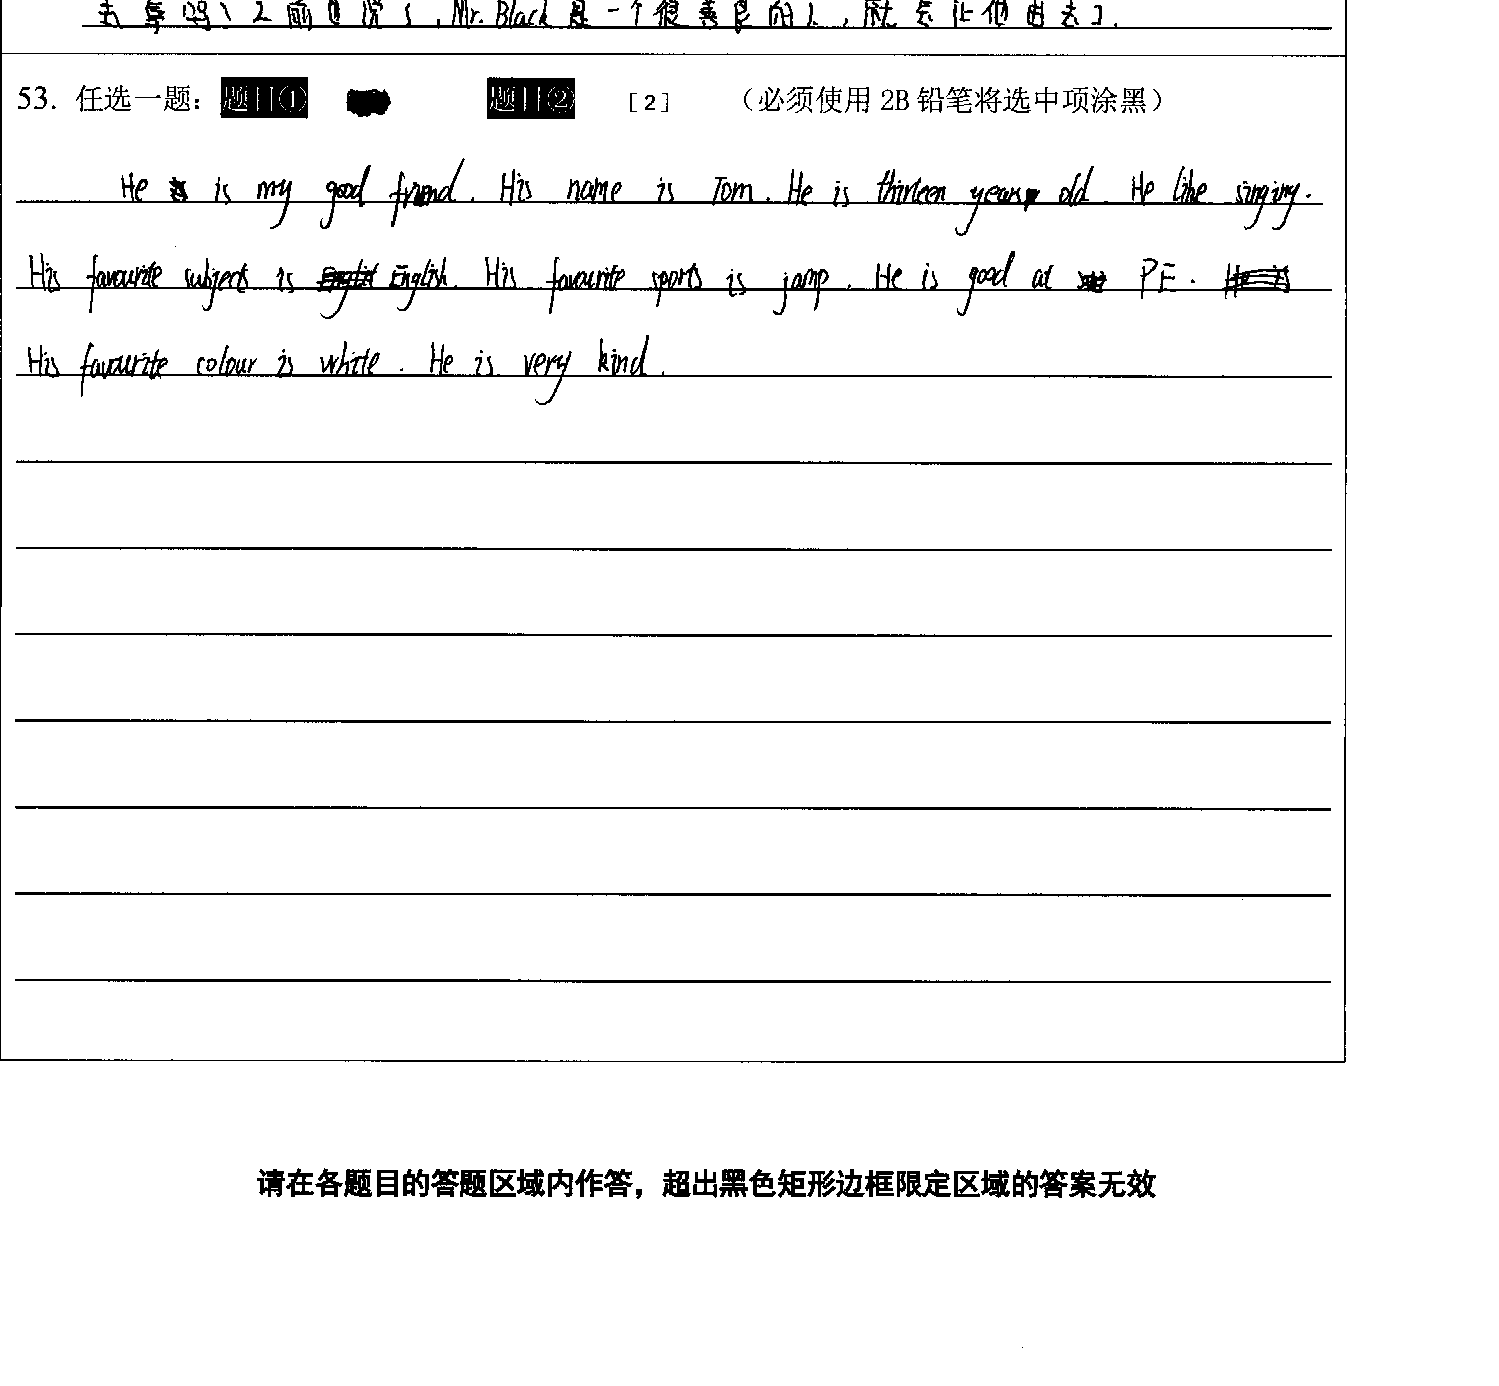 去拿吗、之前也说了,Mr. Black是一个很善良的人,就会让他出去了.
53. 任选一题: 题目① 题目② [2] (必须使用 2B 铅笔将选中项涂黑)
He is my good friend. His name is Tom. He is thirteen years old. He like singing.
His favourite subjects is English. His favourite sports is jamp. He is good at PE.
His favourite colour is white. He is very kind.
请在各题目的答题区域内作答,超出黑色矩形边框限定区域的答案无效